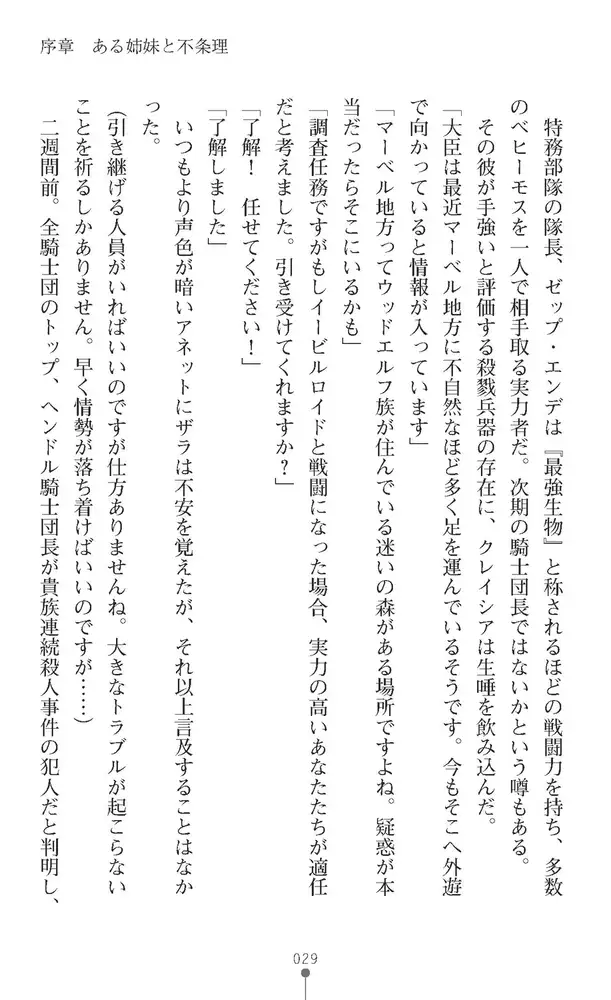 序章　ある姉妹と不条理
特務部隊の隊長、ゼップ・エンデは『最強生物』と称されるほどの戦闘力を持ち、多数
のベヒーモスを一人で相手取る実力者だ。次期の騎士団長ではないかという噂もある。
その彼が手強いと評価する殺戮兵器の存在に、クレイシアは生唾を飲み込んだ。
「大臣は最近マーベル地方に不自然なほど多く足を運んでいるそうです。今もそこへ外遊
で向かっていると情報が入っています」
「マーベル地方ってウッドエルフ族が住んでいる迷いの森がある場所ですよね。疑惑が本
当だったらそこにいるかも」
「調査任務ですがもしイービルロイドと戦闘になった場合、実力の高いあなたたちが適任
だと考えました。引き受けてくれますか？」
「了解！　任せてください！」
「了解しました」
いつもより声色が暗いアネットにザラは不安を覚えたが、それ以上言及することはなか
った。
（引き継げる人員がいればいいのですが仕方ありませんね。大きなトラブルが起こらない
ことを祈るしかありません。早く情勢が落ち着けばいいのですが……）
二週間前。全騎士団のトップ、ヘンドル騎士団長が貴族連続殺人事件の犯人だと判明し、
029